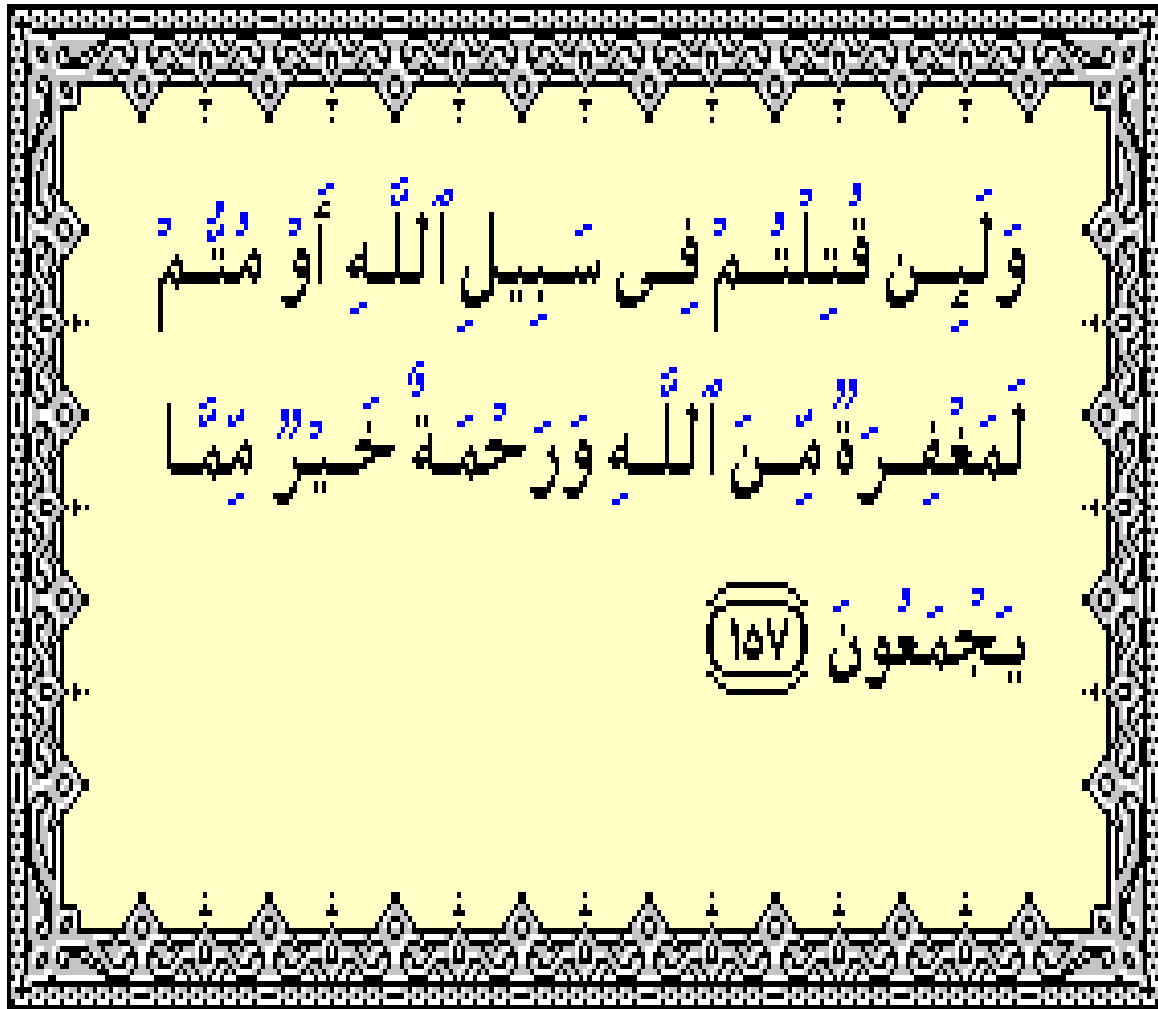 وَلَئِن قُتِلْتُمْ فِى سَبِيلِ ٱللَّهِ أَوْ مُتُّمْ
لَمَغْفِرَةٌ مِّنَ ٱللَّهِ وَرَحْمَةٌ خَيْرٌ مِّمَّا
يَجْمَعُونَ ١٥٧